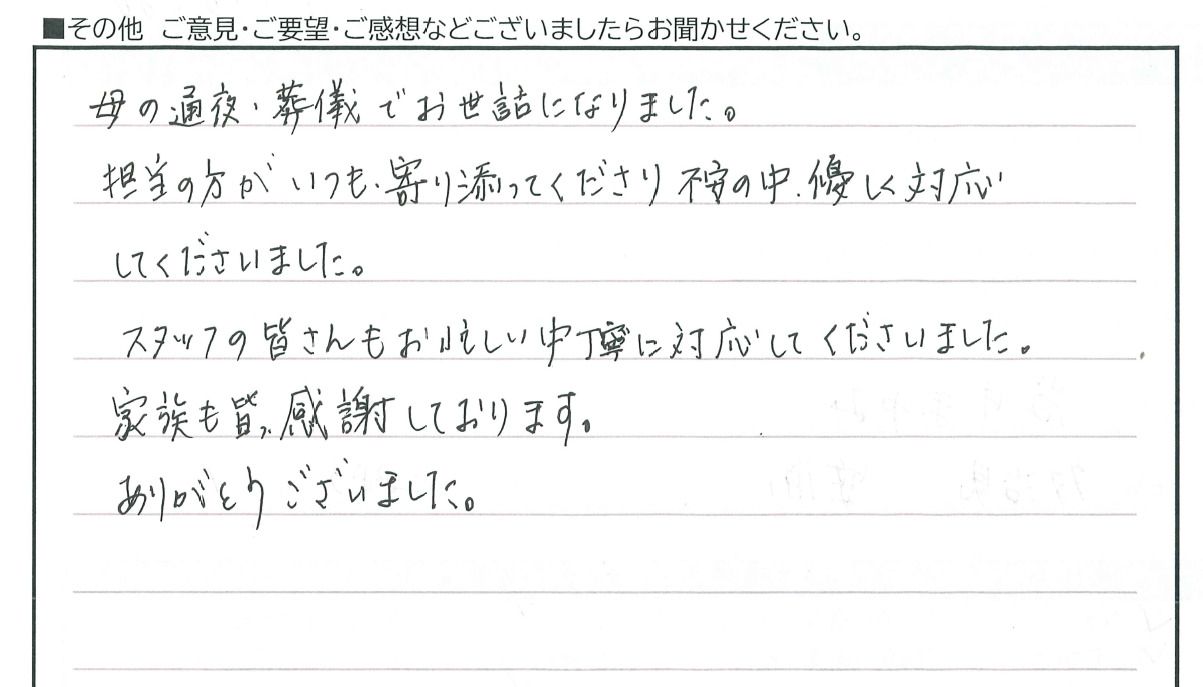 ■その他 ご意見・ご要望・ご感想などございましたらお聞かせください。
母の通夜・葬儀でお世話になりました。
担当の方がいつも、寄り添ってくださり不安の中、優しく対応
してくださいました。
スタッフの皆さんもお忙しい中丁寧に対応してくださいました。
家族も皆、感謝しております。
ありがとうございました。